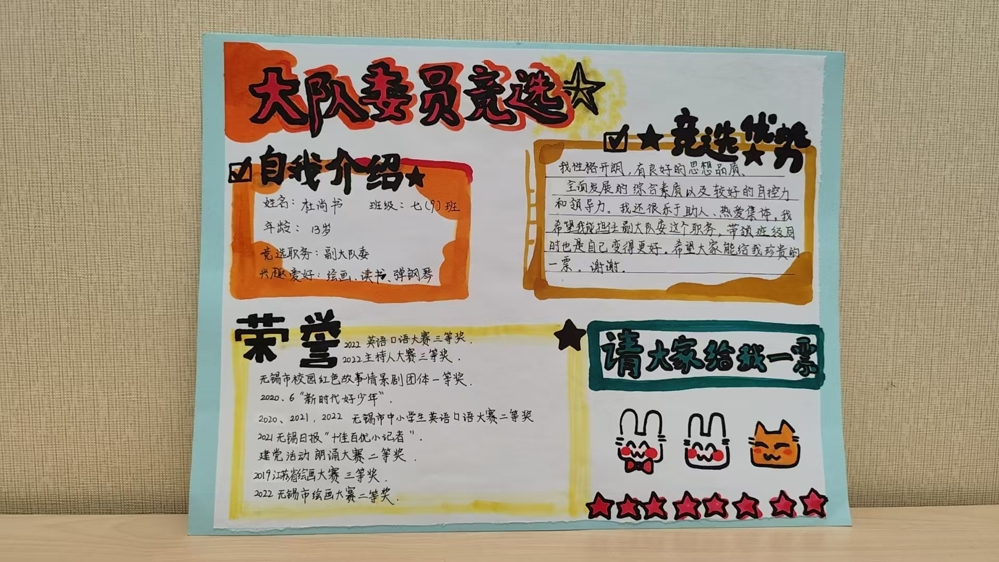 大队委员竞选
自我介绍
姓名：杜尚书 班级：七(9)班
年龄：13岁
竞选职务：副大队委
兴趣爱好：绘画、读书、弹钢琴
竞选优势
我性格开朗，有良好的思想品质、
全面发展的综合素质以及较好的自控力
和领导力。我还很乐于助人、热爱集体，我
希望我能担任副大队委这个职务，带领班级同
时也是自己变得更好。希望大家能给我珍贵的
一票。谢谢。
荣誉
2022 英语口语大赛三等奖.
2022主持人大赛三等奖.
无锡市校园红色故事情景剧团体一等奖.
2020.6“新时代好少年”.
2020、2021，2022 无锡市中小学生英语口语大赛二等奖
2021无锡日报“十佳百优小记者”.
建党活动 朗诵大赛二等奖.
2019江苏省绘画大赛 三等奖.
2022无锡市绘画大赛二等奖.
请大家给我一票